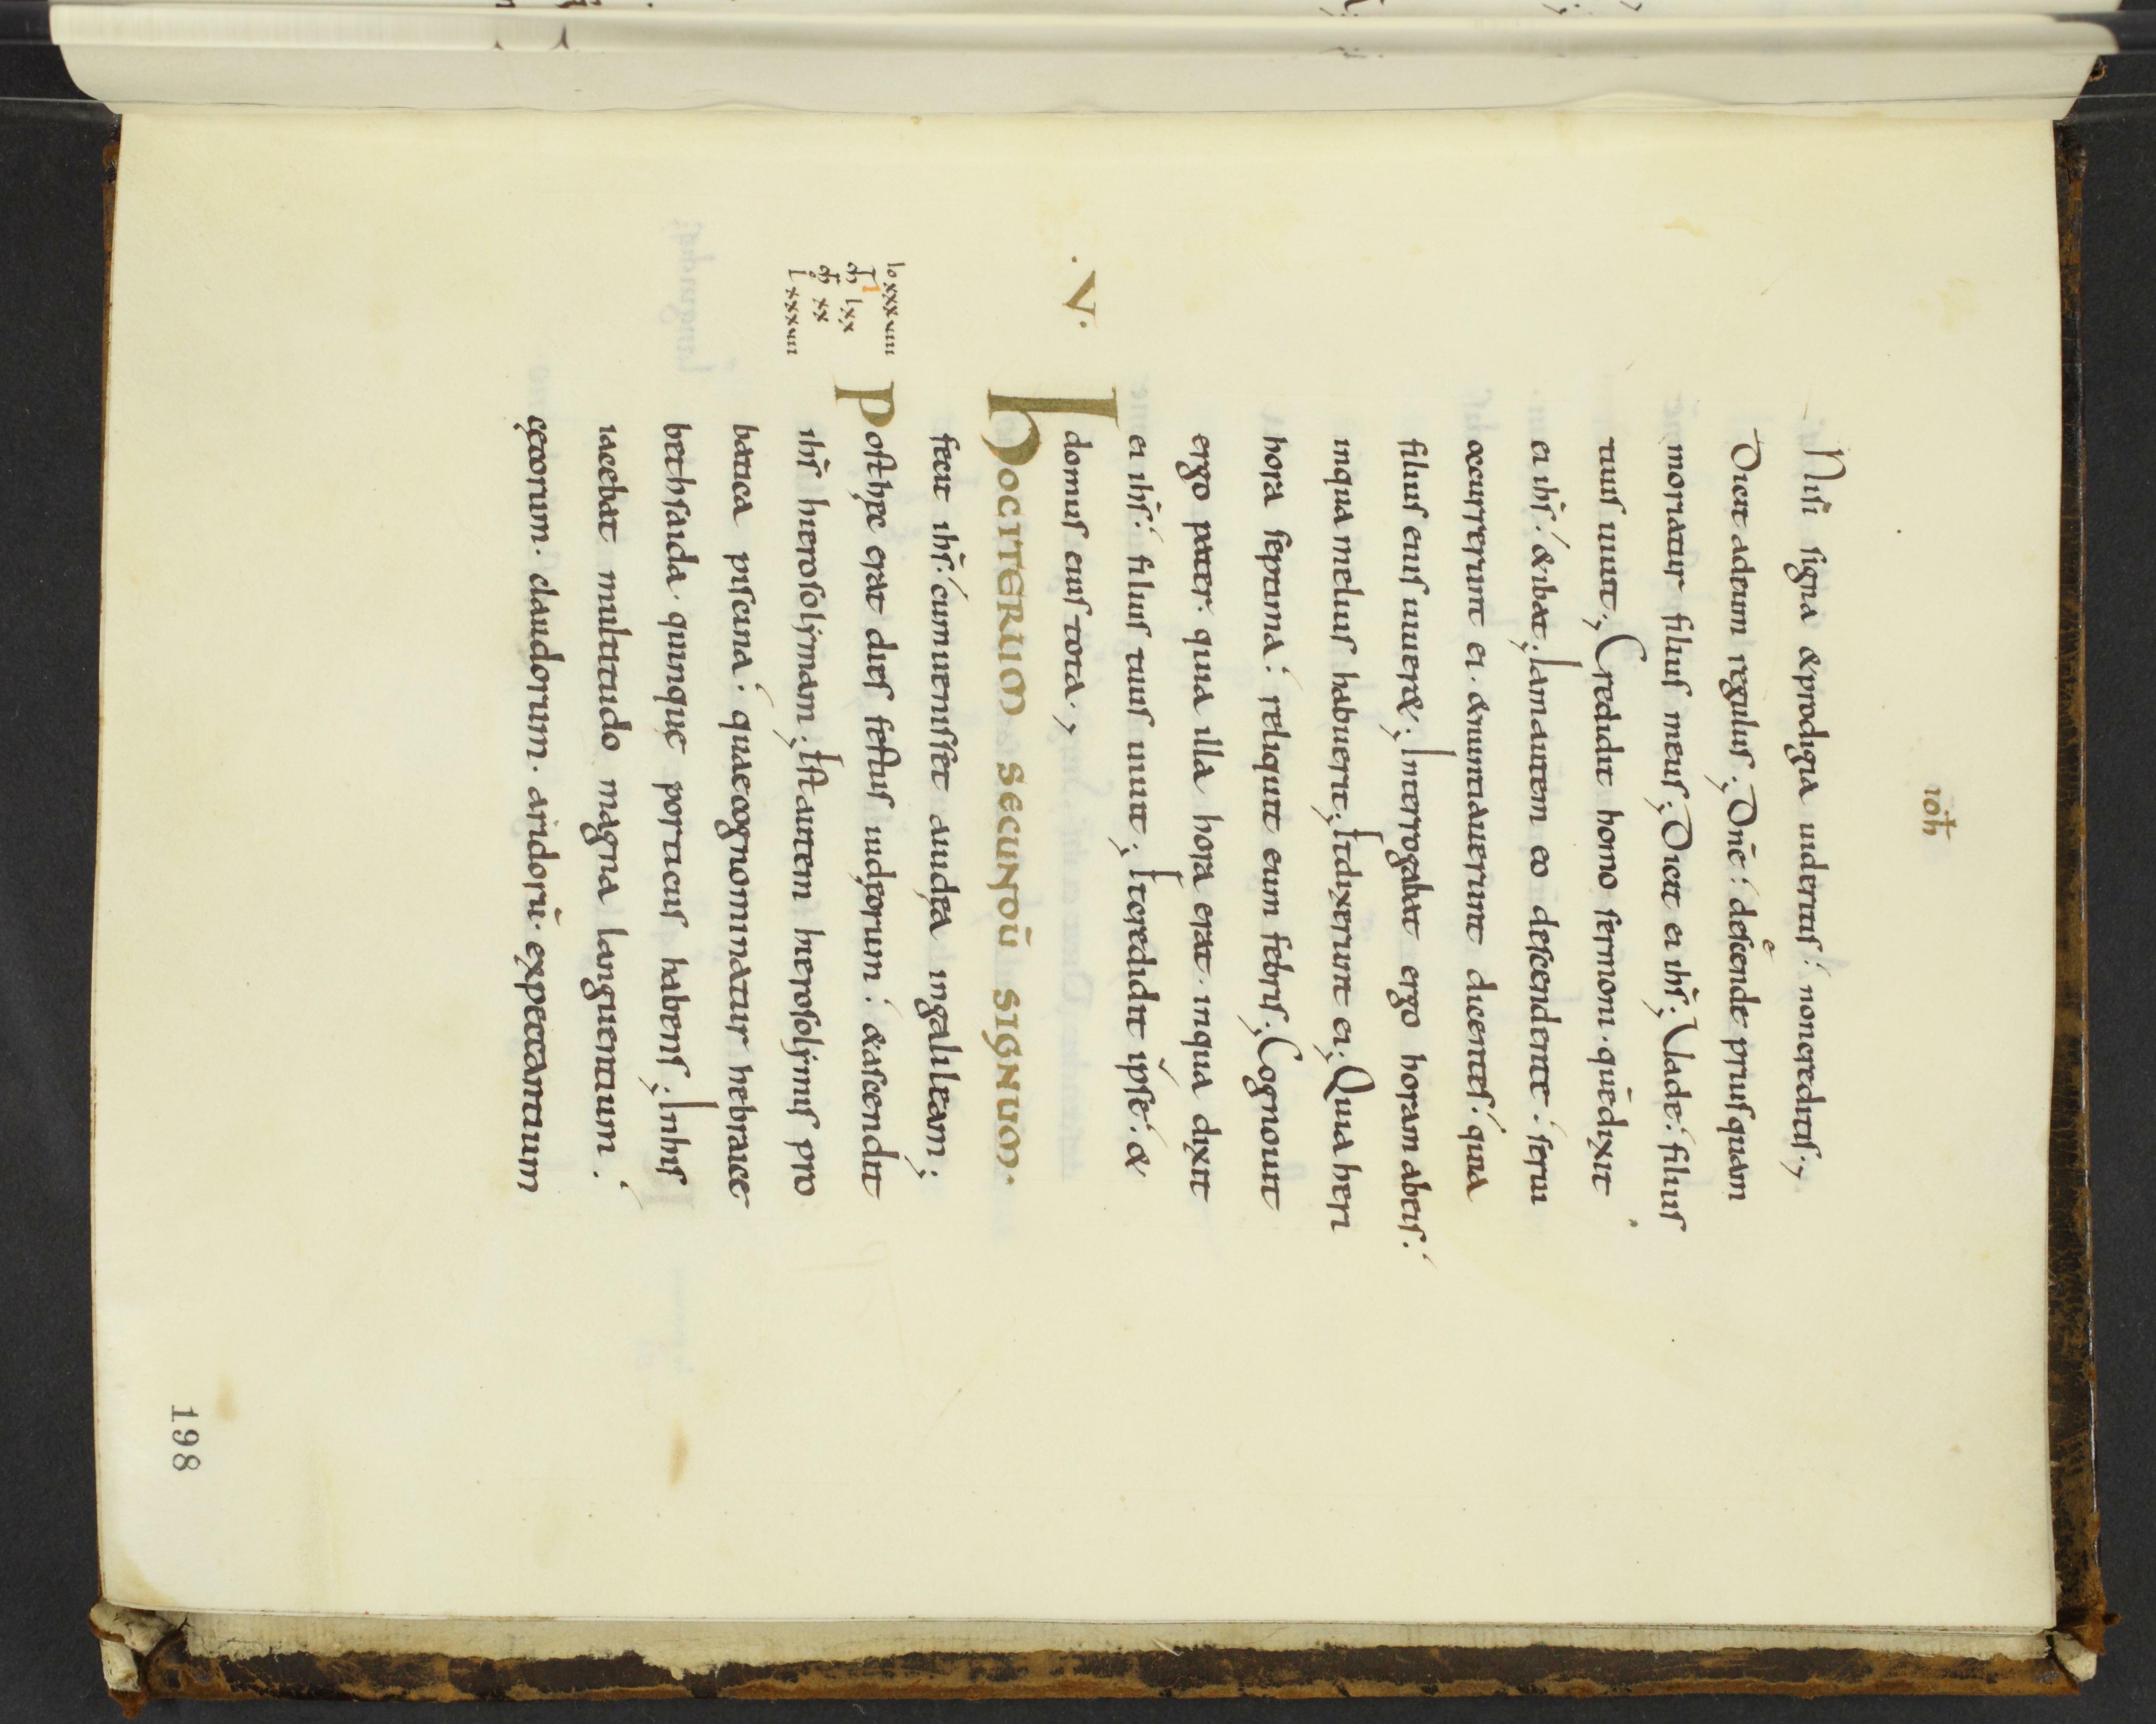 ioh̄
Nisi signa & prodigia uideritis: non creditis;
Dicit ad eum regulus; Dn̄e: descende priusquam
moriatur filius meus; Dicit ei ih̄s; Vade: filius
tuus uiuit; Credidit homo sermoni. quē dixit
ei ih̄s: & ibat; Iam autem eo descendente: serui
occurrerunt ei. & nuntiauerunt dicentes: quia
filius eius uiueret; Interrogabat ergo horam ab eis:
in qua melius habuerit; Et dixerunt ei; Quia heri
hora septima: reliquit eum febris; Cognouit
ergo pater. quia illa hora erat. in qua dixit
ei ih̄s: filius tuus uiuit; Et credidit ipse: &
domus eius tota;
.V.
HOC ITERUM SECUNDŪ SIGNUM.
fecit ih̄s: cum uenisset a iudęa in galileam;
Post hęc erat dies festus iudęorum: & ascendit
ih̄s hierosolymam; Est autem hierosolymis pro
batica piscina: quae cognominatur hebraice
bethsaida. quinquę porticus habens; In his
iacebat multitudo magna languentium:
cęcorum. claudorum. aridorū. expectantium
lxx
xx
198